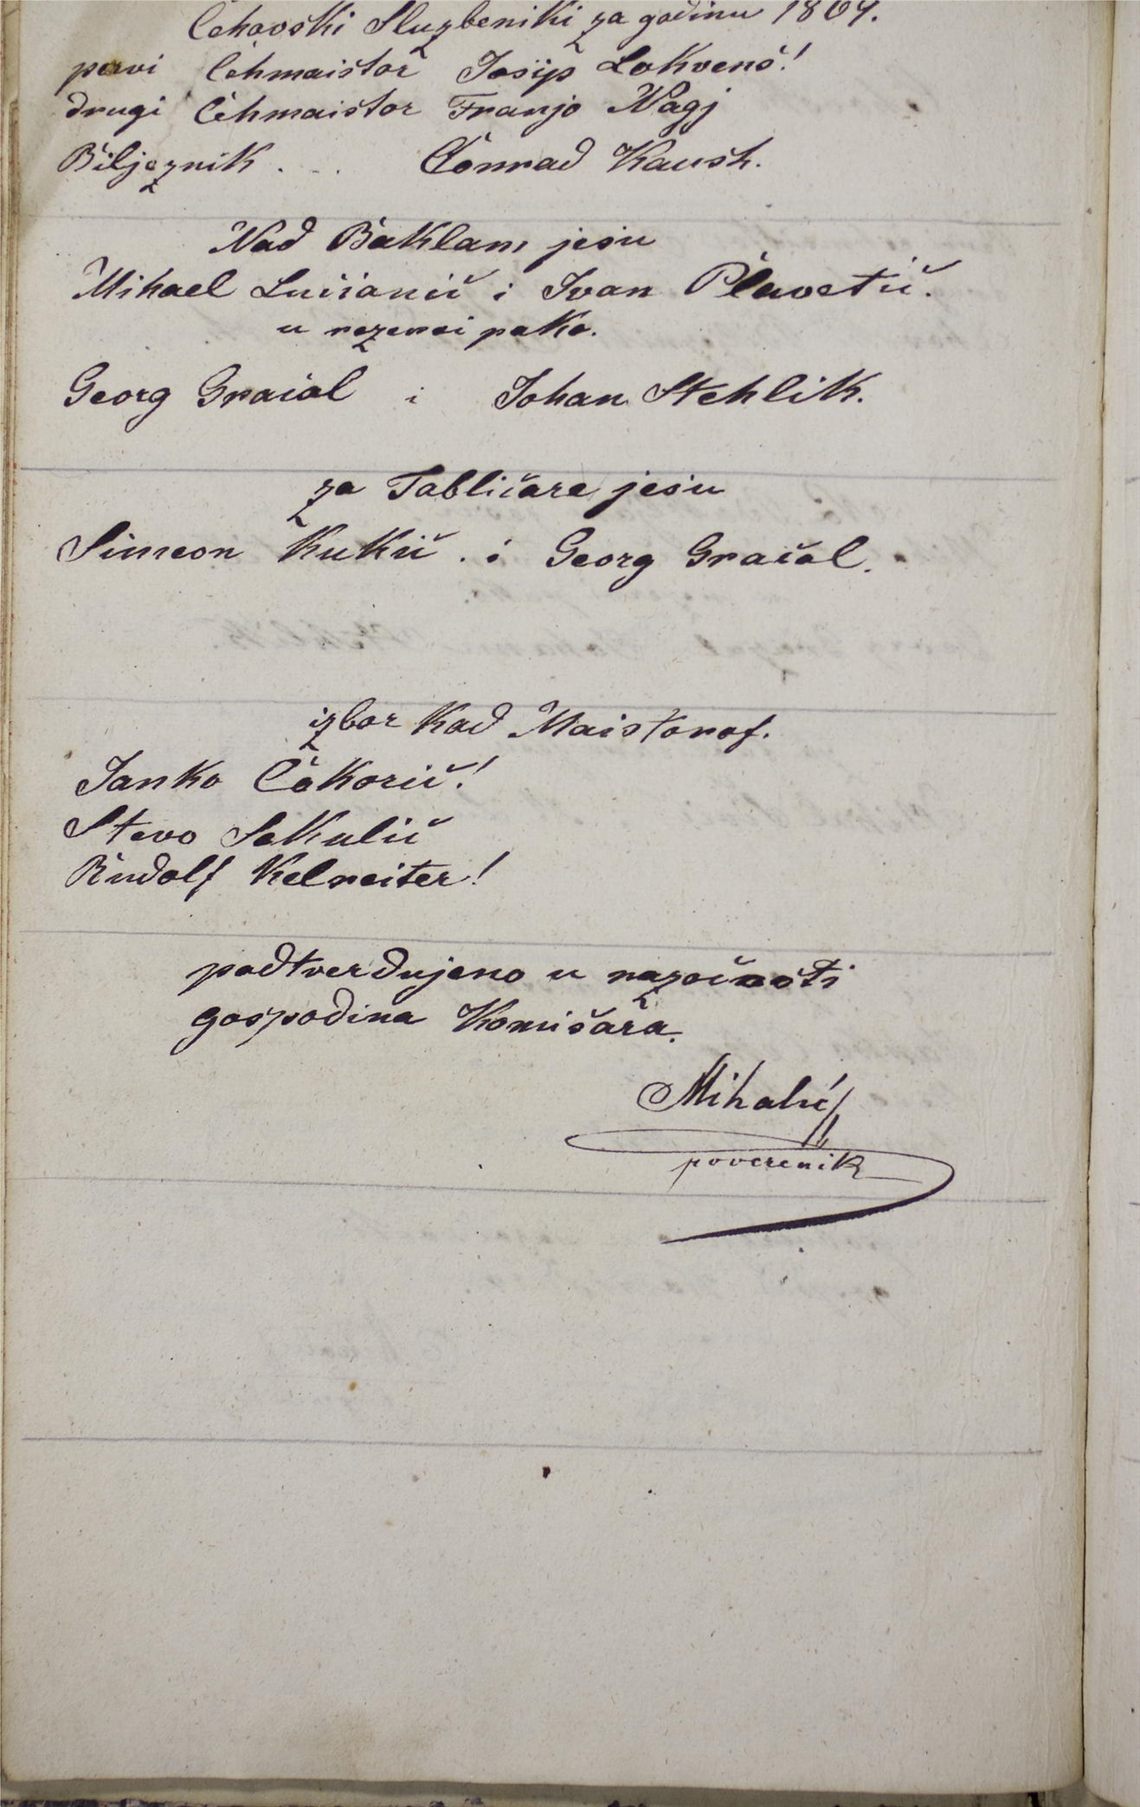 Čehovski Službeniki za godinu 1869.
pervi Čehmaistor Josip Lokvenc!
drugi Čehmaistor Franjo Nagj
Bilježnik . . . Conrad Kaush.
Nad Baklam jesu
Mihael Lucianič i Ivan Plavetič.
u rezervi pako.
Georg Graical i Johan Stehlik.
za Tabličare jesu
Simeon Kukič . i Georg Graičal.
izbor kod Maistorof.
Janko Čakorič!
Stevo Sekulič
Rudolf Kelreiter!
podtverdujeno u nazočnosti
gospodina Komišara.
Mihalić
poverenik